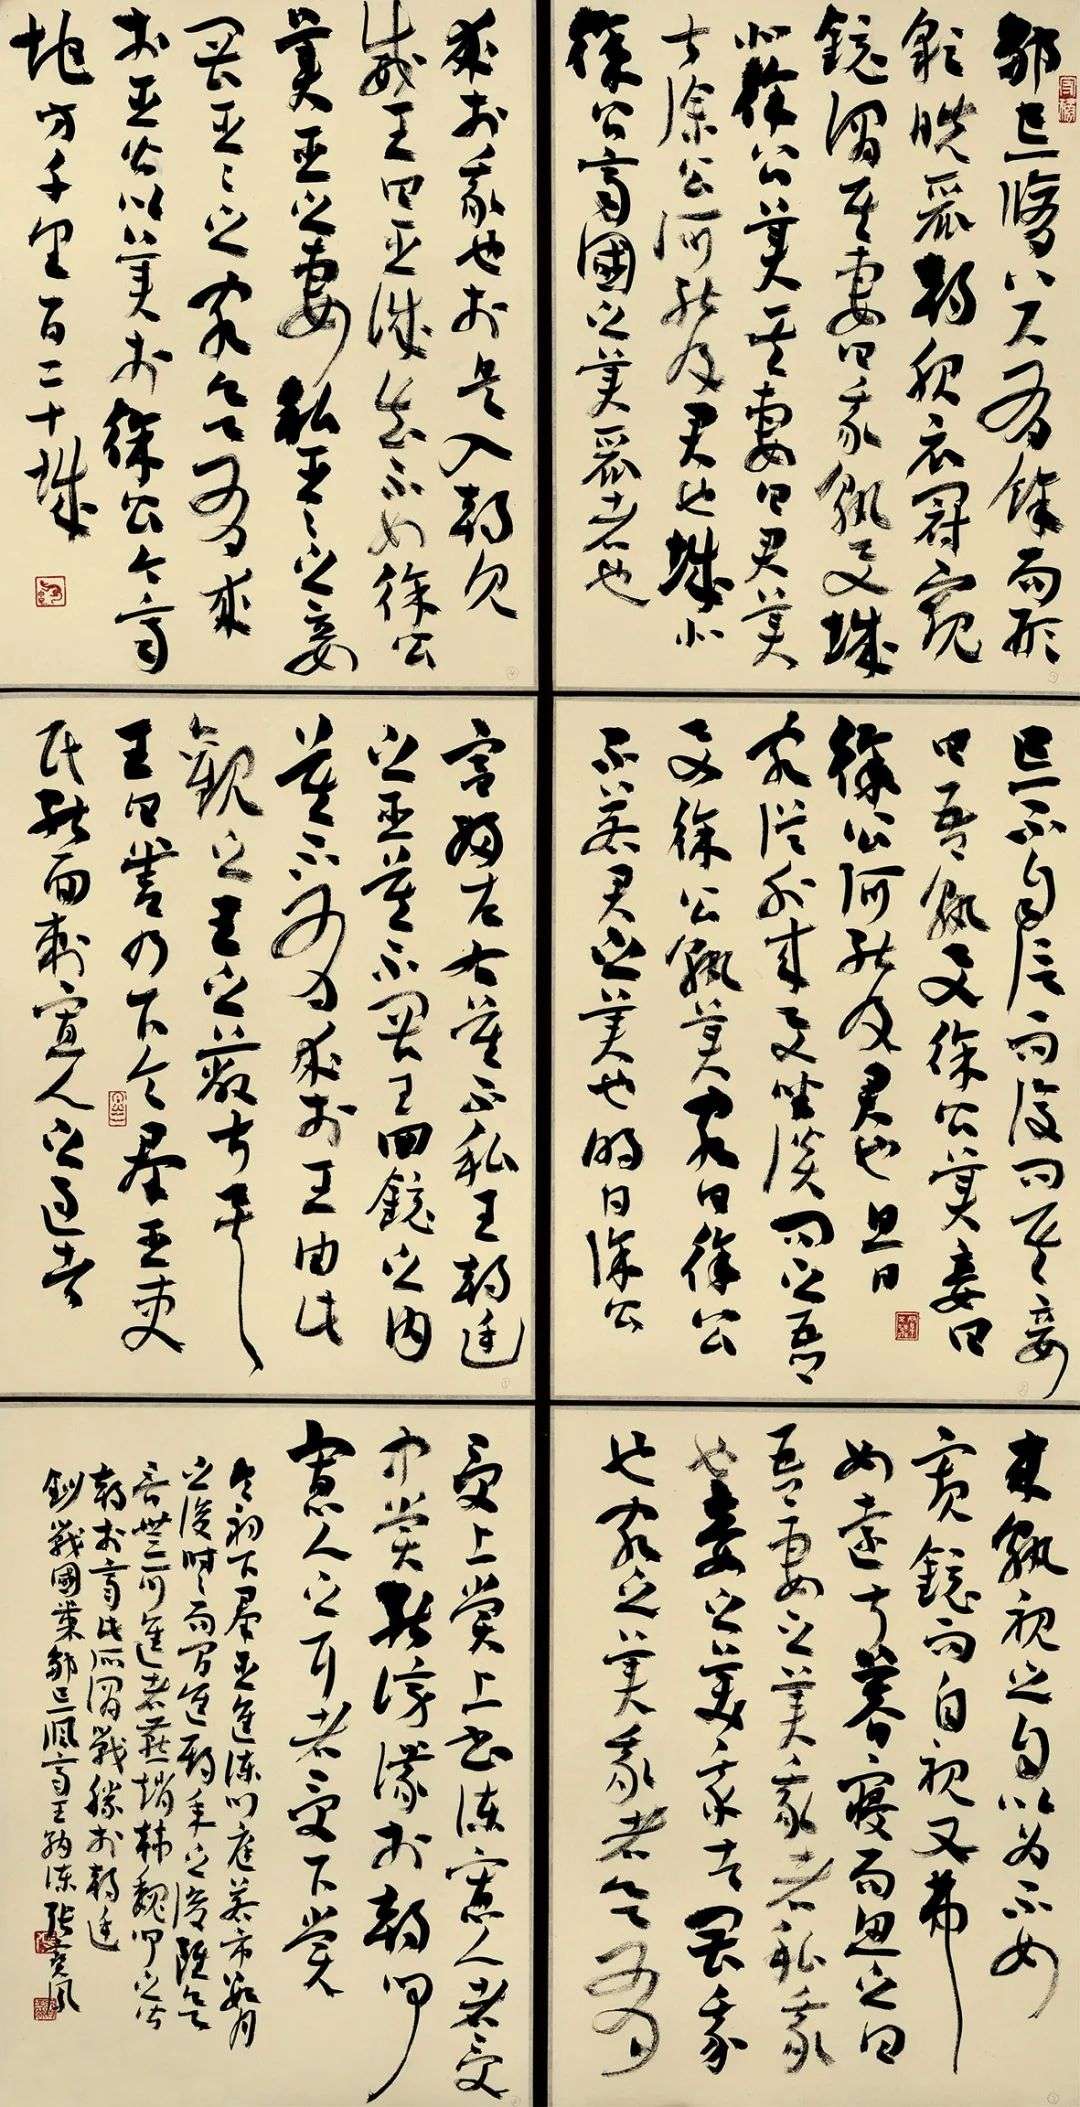 鄒忌脩八尺有餘而形
貌昳麗朝服衣冠窺
鏡謂其妻曰我孰與城
北徐公美其妻曰君美
甚徐公何能及君也城北
徐公齊國之美麗者也
忌不自信而復問其妾
曰吾孰與徐公美妾曰
徐公何能及君也旦日
客從外來與坐談問之吾
與徐公孰美客曰徐公
不若君之美也明日徐公
來孰視之自以為不如
窺鏡而自視又弗
如遠甚暮寢而思之曰
吾妻之美我者私我
也妾之美我者畏我
也客之美我者欲有
求於我也於是入朝見
威王曰臣誠知不如徐公
美臣之妻私臣々之妾
畏臣々之客欲有求
於臣皆以美於徐公今齊
地方千里百二十城
宮婦左右莫不私王朝廷
之臣莫不畏王四鏡之內
莫不有求於王由此
觀之王之蔽甚矣
王曰善乃下令群臣吏
民能面刺寡人之過者
受上賞上書諫寡人者受
中賞能謗議於朝聞
寡人之耳者受下賞
令初下群臣進諫門庭若市數月
之後時々而間進期年之後雖欲
言無可進者燕趙韓魏聞之皆
朝於齊此所謂戰勝於朝廷
鈔戰國策鄒忌諷齊王納諫